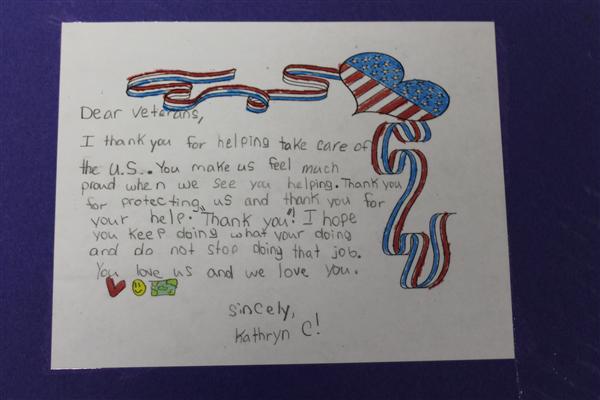 Dear Veterans,
I thank you for helping take care of
the U.S.. You make us feel much
proud when we see you helping. Thank you
for protecting us and thank you for
your help. "Thank you"! I hope
you keep doing what your doing
and do not stop doing that job.
You love us and we love you.
Sincely,
Kathryn C!